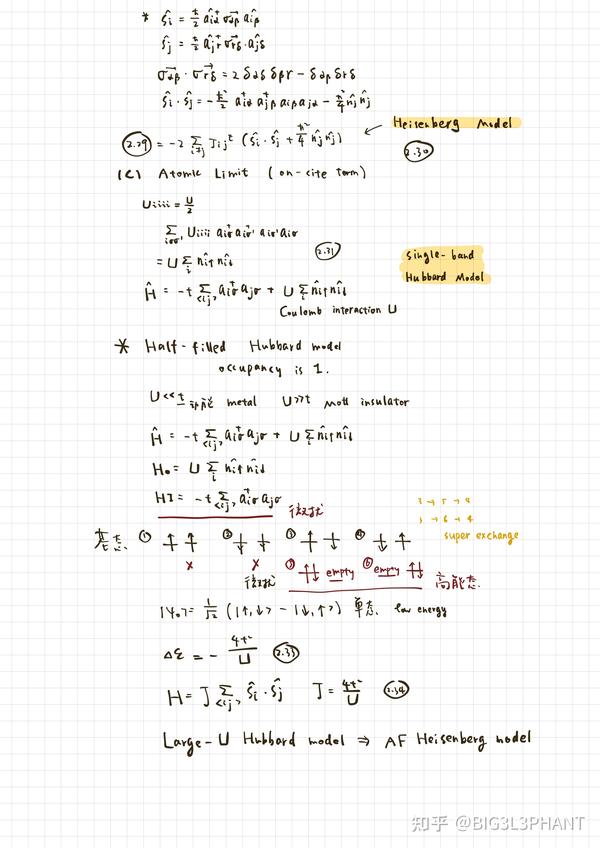 * Ŝi = ħ/2 aiα† σ⃗αβ aiβ
Ŝj = ħ/2 ajγ† σ⃗γδ · ajδ
σ⃗αβ · σ⃗γδ = 2 δαδ δβγ - δαβ δγδ
Ŝi · Ŝj = - ħ²/2 aiα† ajβ† aiβ ajα - ħ²/4 n̂i n̂j
2.29 = -2 Σ i≠j Jij^F (Ŝi · Ŝj + ħ²/4 n̂i n̂j) ← Heisenberg Model
2.30
(c) Atomic Limit (on-cite term)
Uiiii = U/2
Σ iσσ' Uiiii aiσ† aiσ'† aiσ' aiσ
= U Σ i n̂i↑ n̂i↓ 2.31
Single-band
Hubbard Model
Ĥ = -t Σ <ij> aiσ† ajσ + U Σ i n̂i↑ n̂i↓
Coulomb interaction U
* Half-filled Hubbard model
occupancy is 1.
U<<t 动能 metal U>>t Mott insulator
Ĥ = -t Σ <ij> aiσ† ajσ + U Σ i n̂i↑ n̂i↓
H0 = U Σ i n̂i↑ n̂i↓
HI = -t Σ <ij> aiσ† ajσ 微扰
3 → 5 → 4
3 → 6 → 4
super exchange
基态 ① ↑ ↑ ② ↓ ↓ ③ ↑ ↓ ④ ↓ ↑
× ×
微扰 ⑤ ↑↓ empty ⑥ empty ↑↓ 高能态
|ψ0> = 1/√2 (|↑,↓> - |↓,↑>) 单态 low energy
Δε = - 4t²/U 2.33
H = J Σ <ij> Ŝi · Ŝj J = 4t²/U 2.34
Large-U Hubbard model ⇒ AF Heisenberg model
知乎 @BIG3L3PHANT